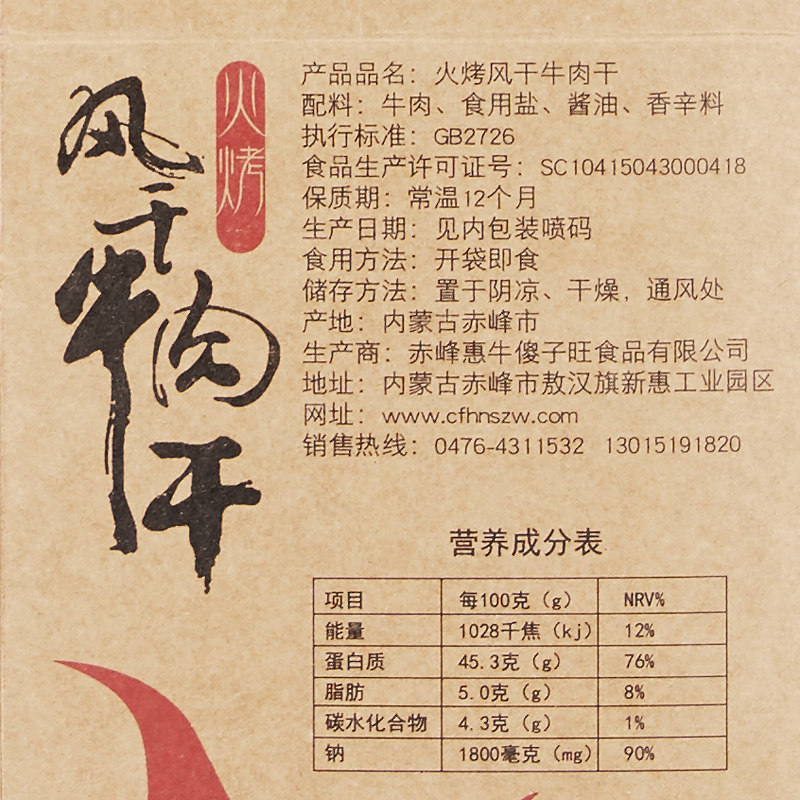 风干牛肉干
火烤
产品品名：火烤风干牛肉干
配料：牛肉、食用盐、酱油、香辛料
执行标准：GB2726
食品生产许可证号：SC10415043000418
保质期：常温12个月
生产日期：见内包装喷码
食用方法：开袋即食
储存方法：置于阴凉、干燥，通风处
产地：内蒙古赤峰市
生产商：赤峰惠牛傻子旺食品有限公司
地址：内蒙古赤峰市敖汉旗新惠工业园区
网址：www.cfhnszw.com
销售热线：0476-4311532 13015191820
营养成分表
项目 每100克（g） NRV%
能量 1028千焦（kj） 12%
蛋白质 45.3克（g） 76%
脂肪 5.0克（g） 8%
碳水化合物 4.3克（g） 1%
钠 1800毫克（mg） 90%